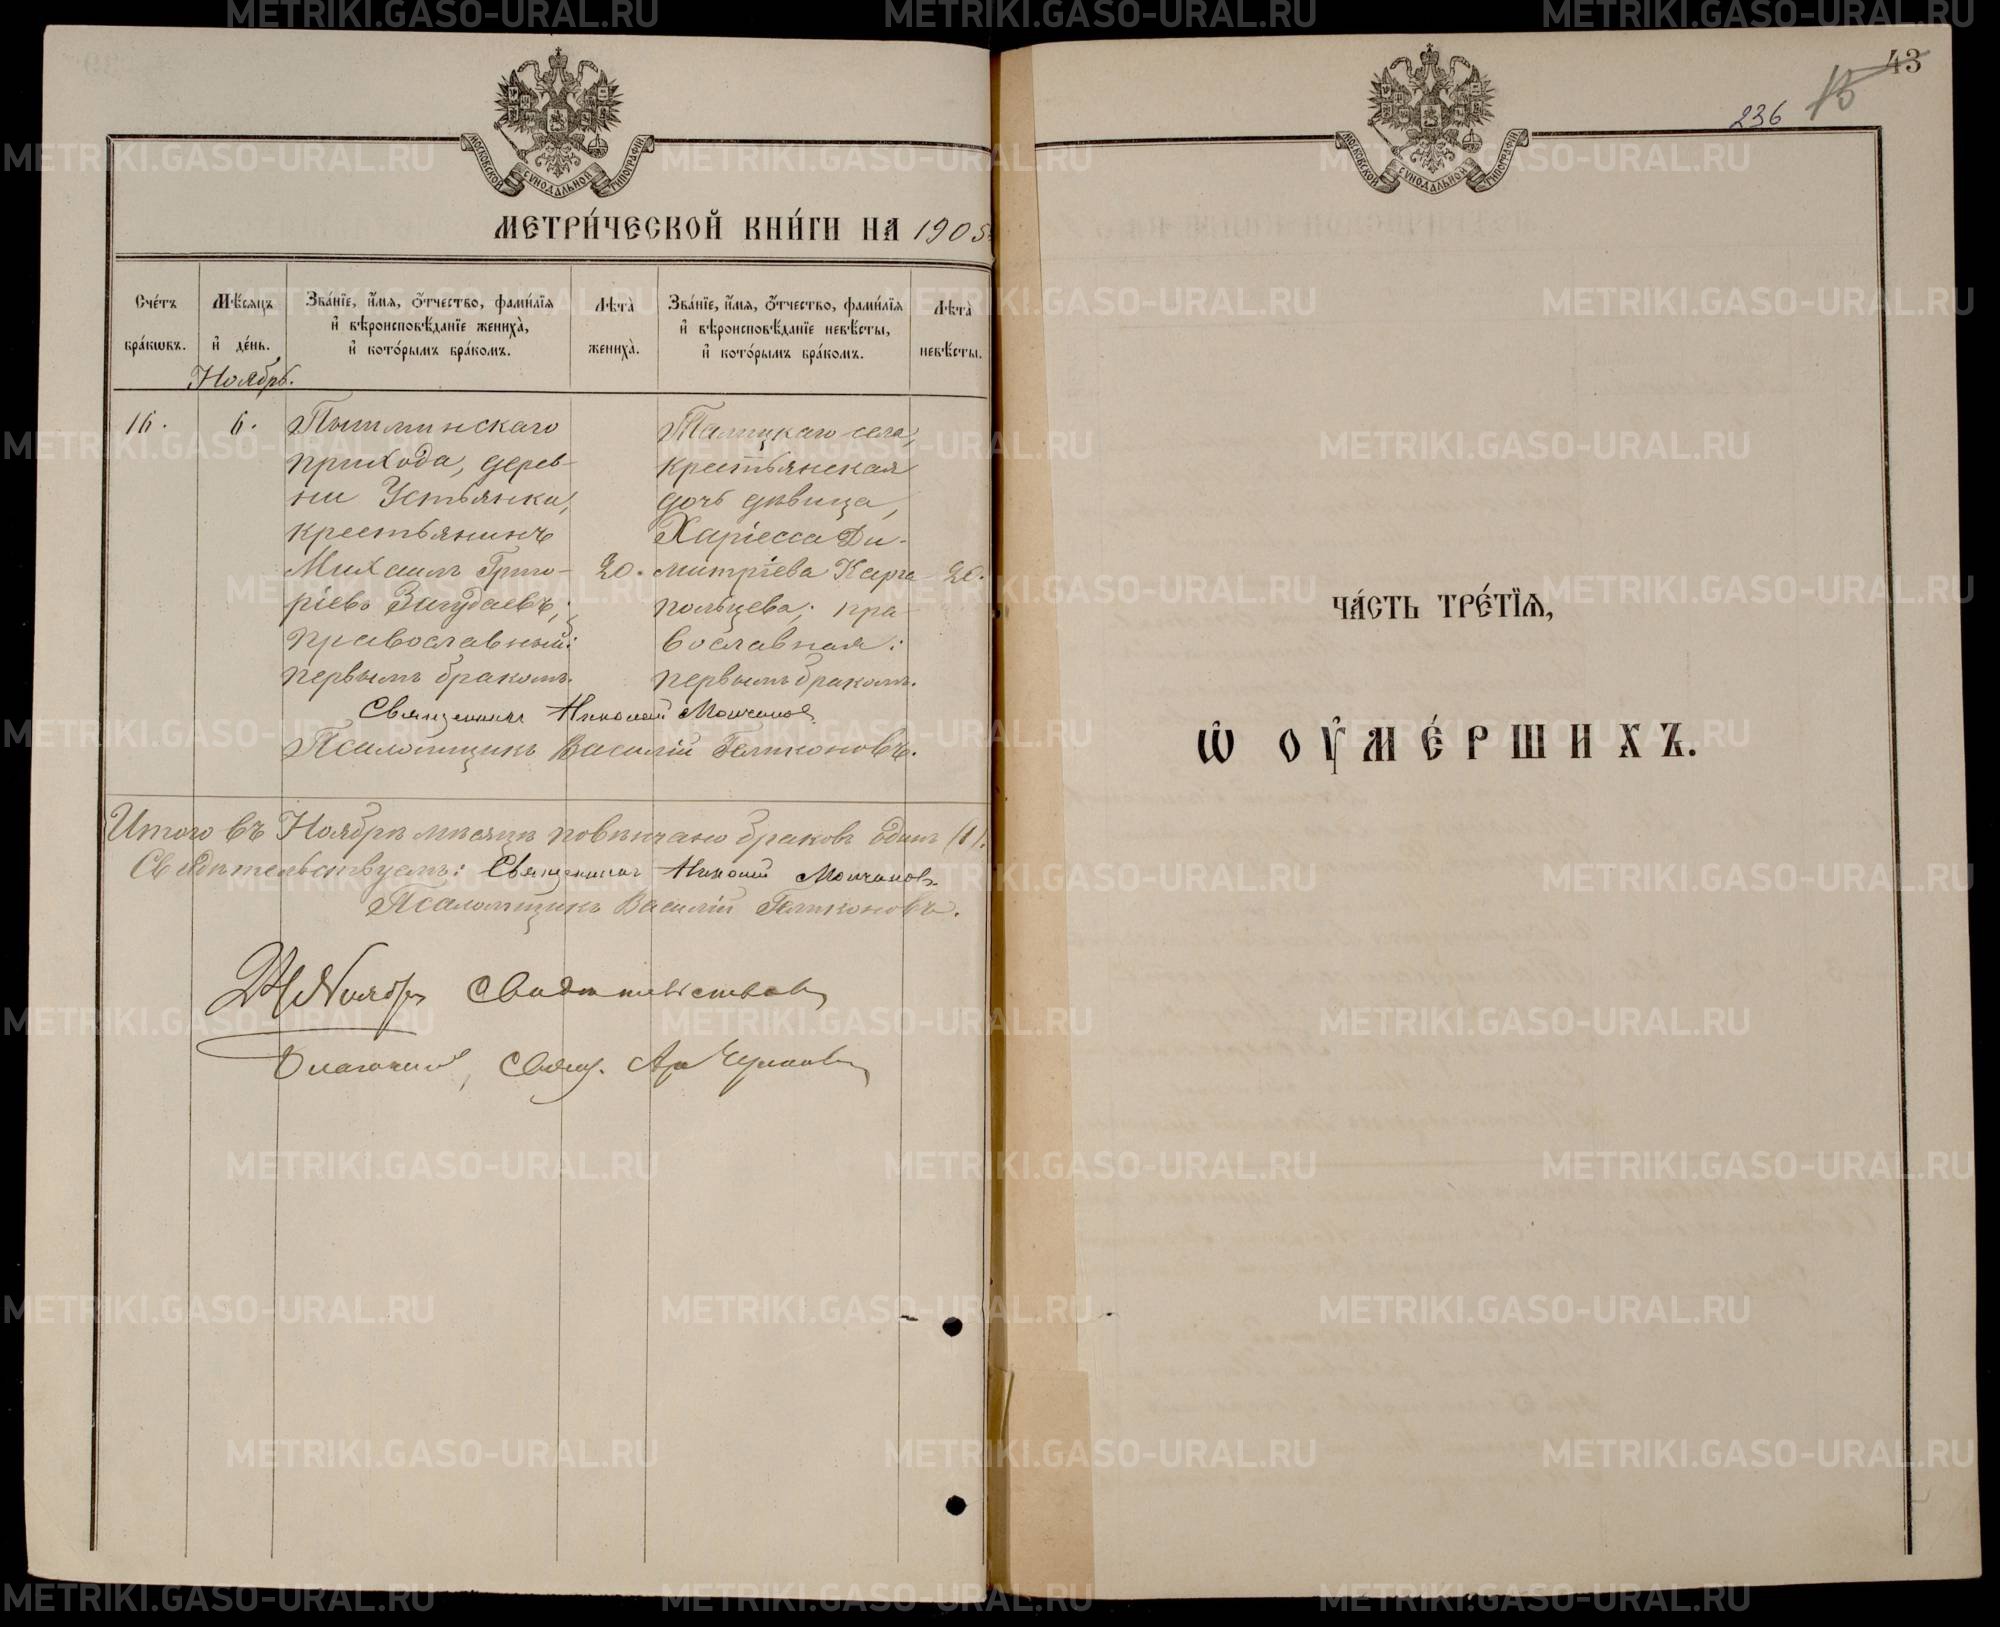 МОСКОВСКОЙ СѴНОДАЛЬНОЙ ТИПОГРАФІИ
МЕТРИ́ЧЕСКОЙ КНИ́ГИ НА 1905
Сче́тъ бра́кωвъ.
Мѣ́сяцъ и҆ де́нь.
Зва́нїе, и҆́мя, ѻ҆́тчество, фами́лїя и҆ вѣроисповѣ́данїе жениха̀, и҆ кото́рымъ бра́комъ.
Лѣта̀ жениха̀.
Зва́нїе, и҆́мя, ѻ҆́тчество, фами́лїя и҆ вѣроисповѣ́данїе невѣ́сты, и҆ кото́рымъ бра́комъ.
Лѣта̀ невѣ́сты.
Ноябрь.
16.
6.
Пышминскаго
прихода, дерев-
ни Устьянки,
крестьянинъ
Михаилъ Григо-
ріевъ
православный:
первымъ бракомъ.
20.
Талицкаго села,
крестьянская
дочь дѣвица,
Харіесса Ди-
митріева Карга-
польцева; пра-
вославная:
первымъ бракомъ.
20.
Священникъ Николай
Псаломщикъ Василій
Итого въ Ноябрѣ мѣсяцѣ повѣнчано браковъ одинъ (1).
Свидѣтельствуемъ: Священникъ Николай
Псаломщикъ Василій
Ноября свидѣтельствовалъ
Благочинный, Свящ.
43
236
МОСКОВСКОЙ СѴНОДАЛЬНОЙ ТИПОГРАФІИ
ЧА́СТЬ ТРЕ́ТЇЯ,
Ѡ҆ ОУ҆МЕ́РШИХЪ.
METRIKI.GASO-URAL.RU